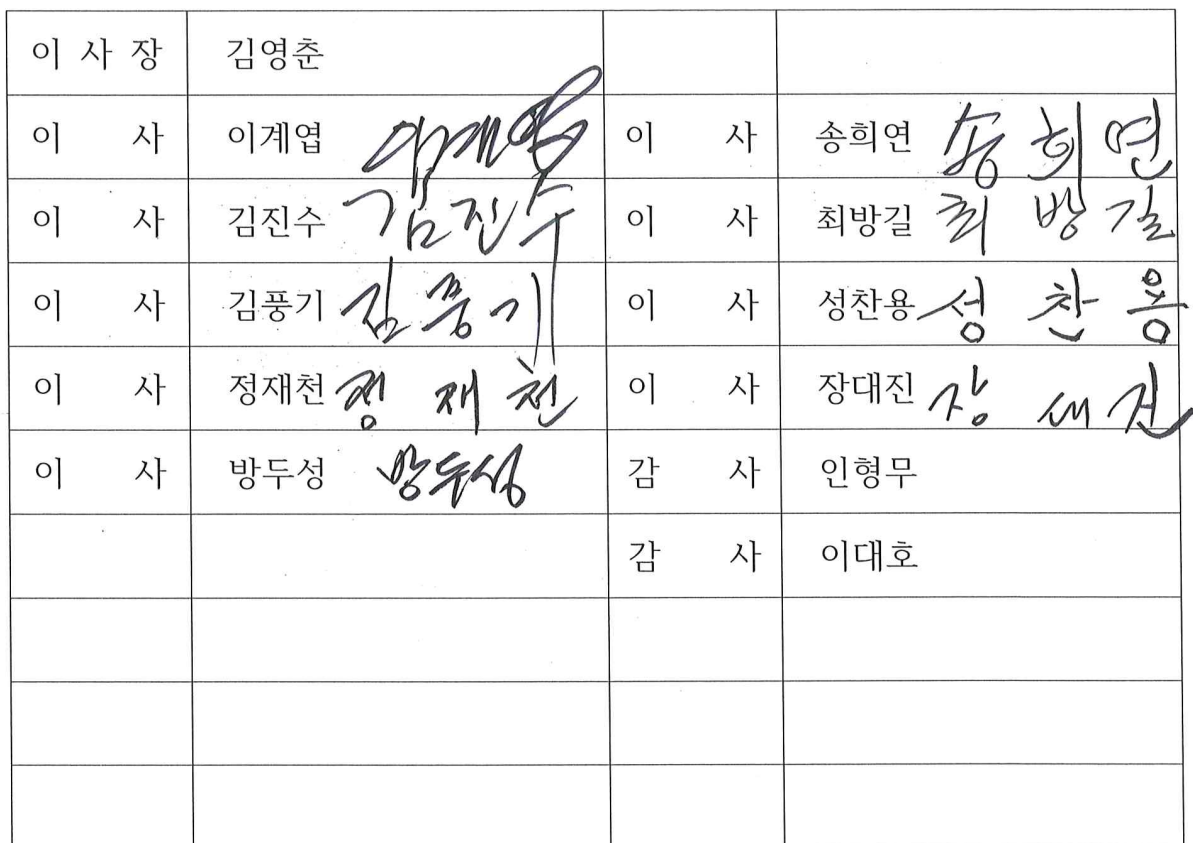 이 사 장 김영춘
이 사 이계엽 이계엽 이 사 송희연 송희연
이 사 김진수 김진수 이 사 최방길 최방길
이 사 김풍기 김풍기 이 사 성찬용 성찬용
이 사 정재천 정재천 이 사 장대진 장대진
이 사 방두성 방두성 감 사 인형무
감 사 이대호